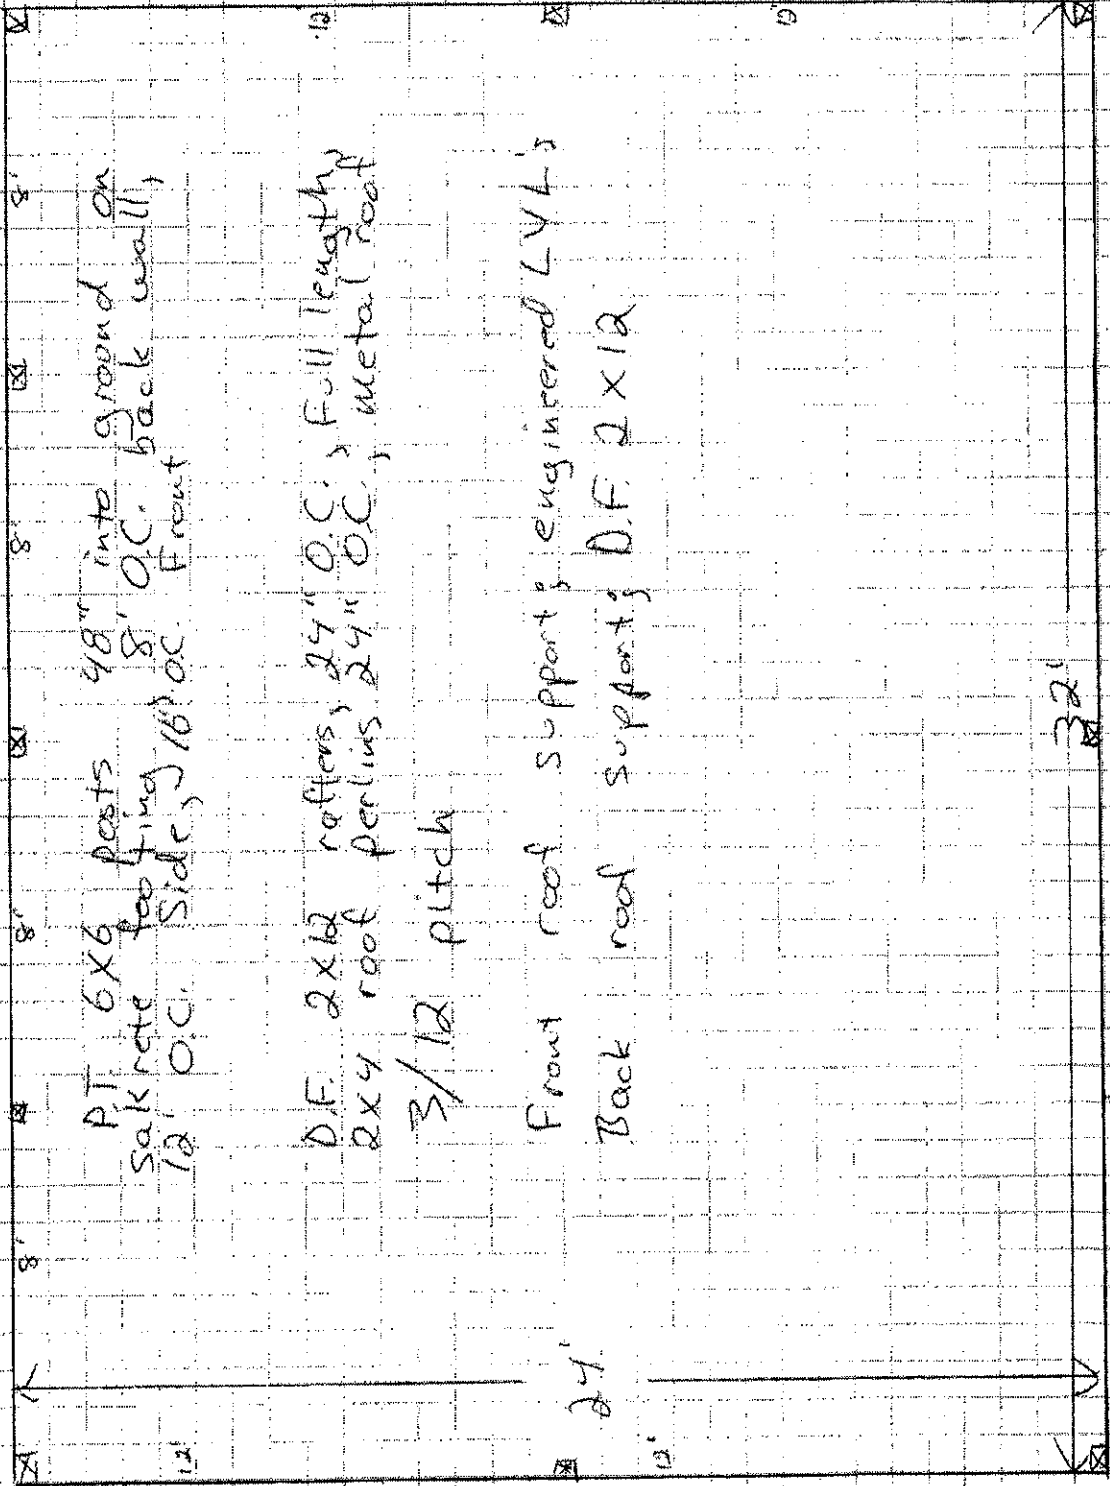 8' 8' 8' 8'
12'
12
P.T. 6X6 posts 48" into ground on
Sakrete footing 8' O.C. back wall,
12' O.C. Side, 16' O.C. Front
D.F. 2X12 rafters, 24" O.C., Full length,
2x4 roof perlins 24" O.C., metal roof
3/12 pitch
Front roof support; engineered LVL's
Back roof support; D.F. 2X12
24'
12'
12
32'